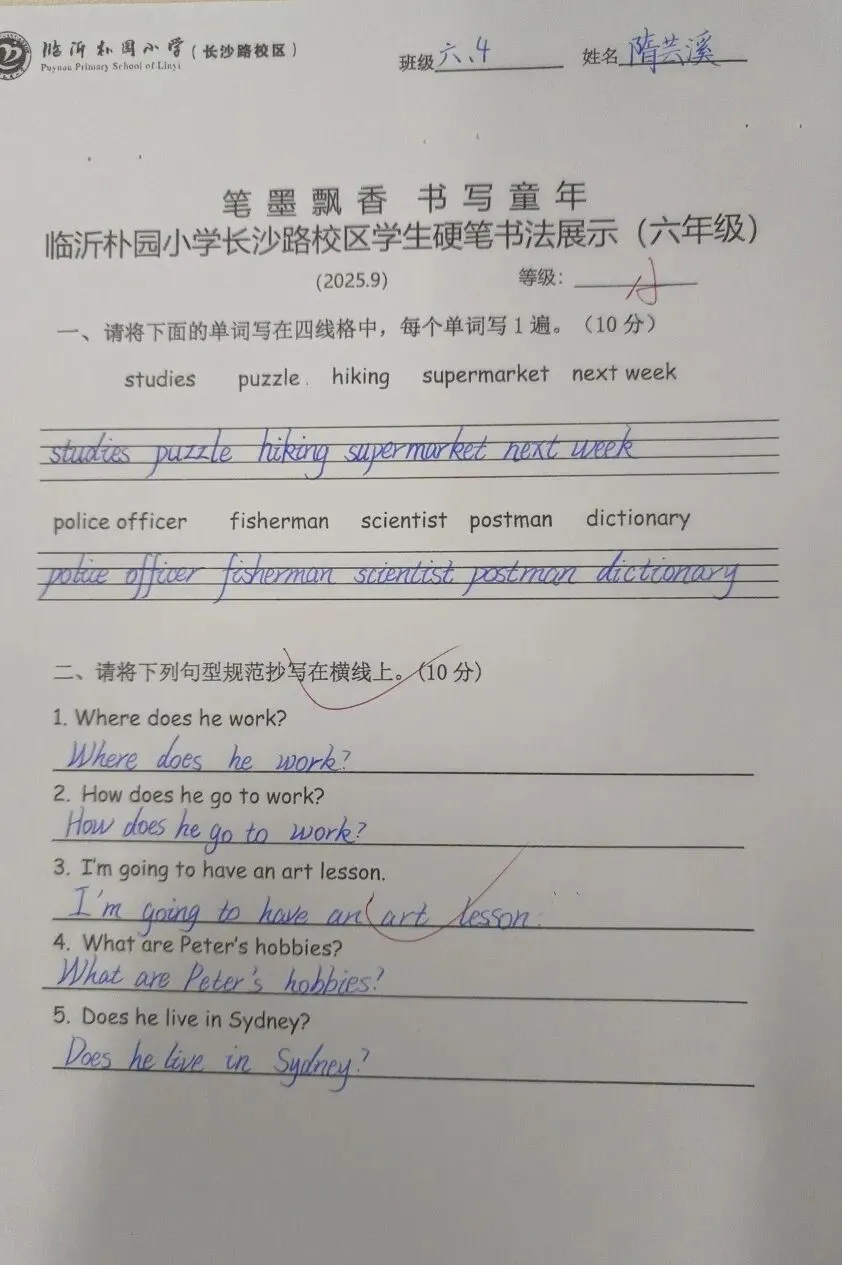 临沂朴园小学(长沙路校区)
Puyuan Primary School of Linyi
班级 六、4 姓名 隋芸溪
笔墨飘香 书写童年
临沂朴园小学长沙路校区学生硬笔书法展示（六年级）
(2025.9) 等级：
一、请将下面的单词写在四线格中，每个单词写1遍。（10分）
studies puzzle hiking supermarket next week
studies puzzle hiking supermarket next week
police officer fisherman scientist postman dictionary
police officer fisherman scientist postman dictionary
二、请将下列句型规范抄写在横线上。(10分)
1. Where does he work?
Where does he work?
2. How does he go to work?
How does he go to work?
3. I'm going to have an art lesson.
I'm going to have an art lesson.
4. What are Peter's hobbies?
What are Peter's hobbies?
5. Does he live in Sydney?
Does he live in Sydney?